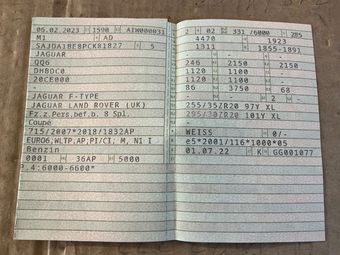 05.02.2023 1590 AIW000031
M1 AD
SAJDA1BE8PCK81827 5
JAGUAR
QQ6
DH8DC0
20CE000
-
JAGUAR F-TYPE
JAGUAR LAND ROVER (UK)
Fz.z.Pers.bef.b. 8 Spl.
Coupé
715/2007*2018/1832AP
EURO6,WLTP,AP;PI/CI; M, N1 I
Benzin
0001 36AP 5000
*.4:6000-6600*
2 02 331 /6000 285
4470 1923
1311 1855-1891
- -
246 2150 2150
1120 1100 -
1120 1100 -
86 3750 68
2 - -
255/35ZR20 97Y XL
295/30ZR20 101Y XL
-
WEISS 0/-
e5*2001/116*1000*05
01.07.22 K GG001077